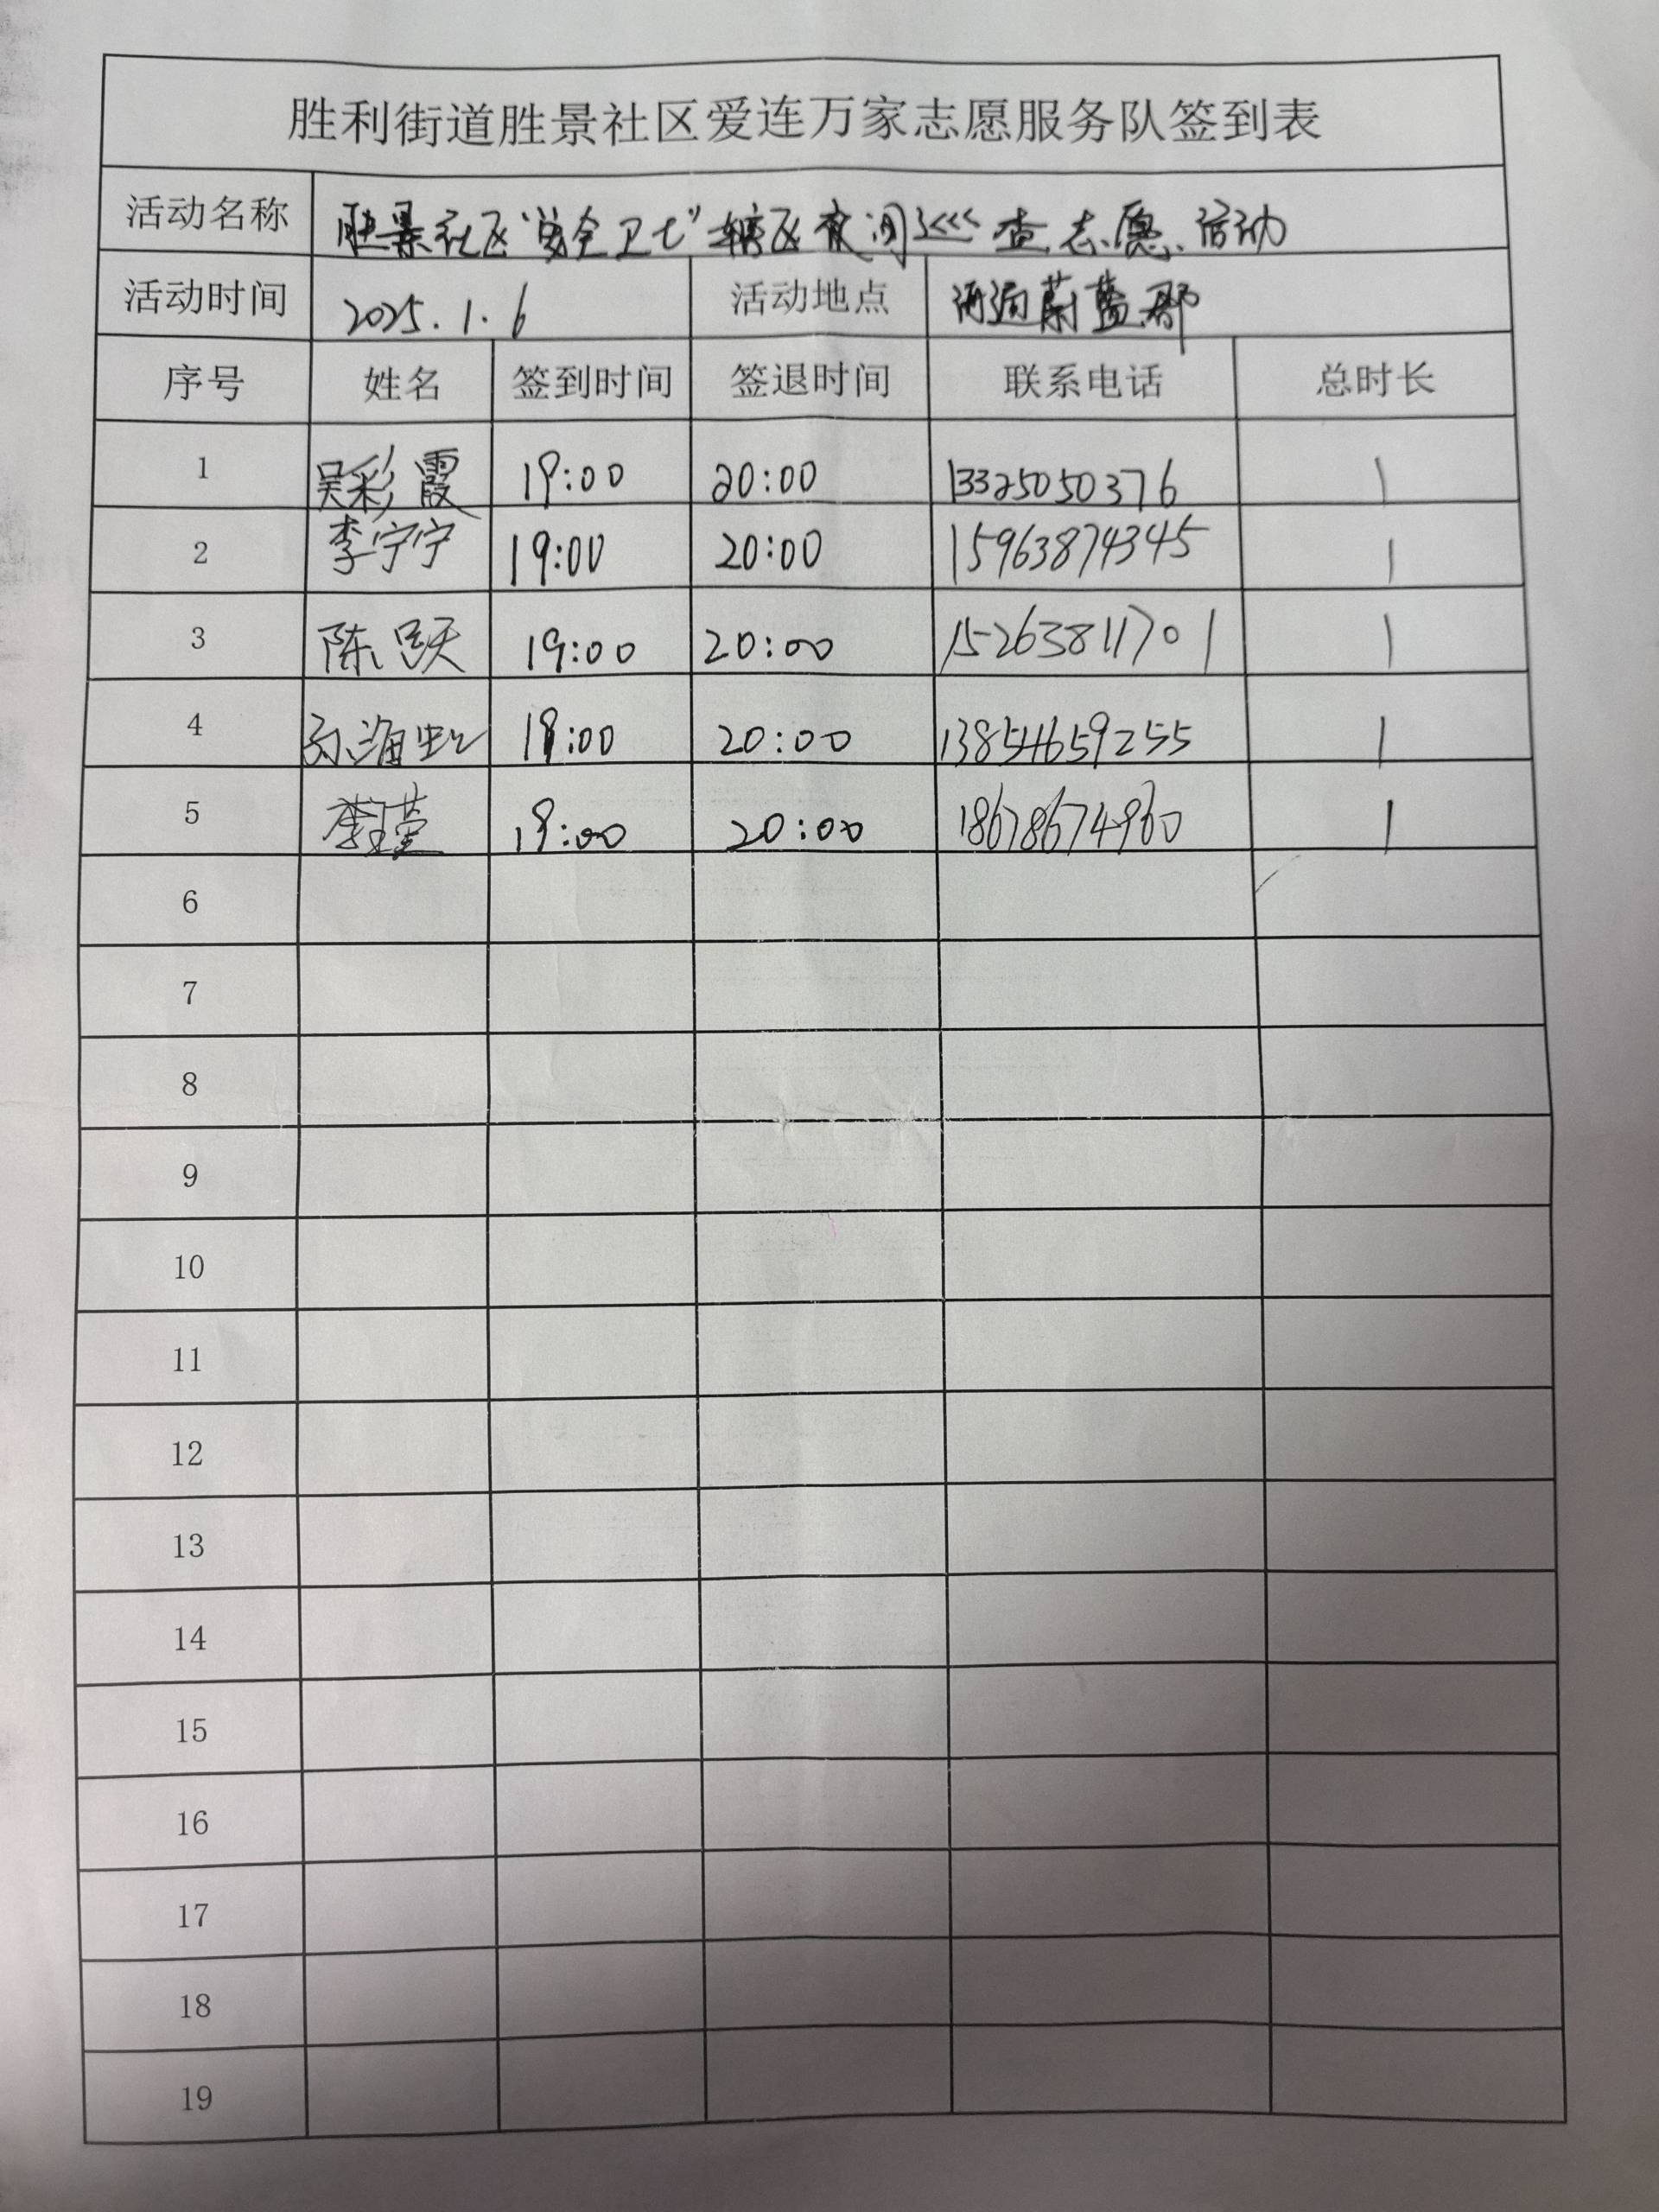 胜利街道胜景社区爱连万家志愿服务队签到表
活动名称 胜景社区“安全卫士”辖区夜间巡查志愿活动
活动时间 2025.1.6 活动地点 蔚蓝郡
序号 姓名 签到时间 签退时间 联系电话 总时长
1 吴彩霞 19:00 20:00 13325050376 1
2 李宁宁 19:00 20:00 15963874345 1
3 陈 19:00 20:00 15263811701 1
4 孙海虹 19:00 20:00 13854659255 1
5 李莹 19:00 20:00 18678674960 1
6
7
8
9
10
11
12
13
14
15
16
17
18
19